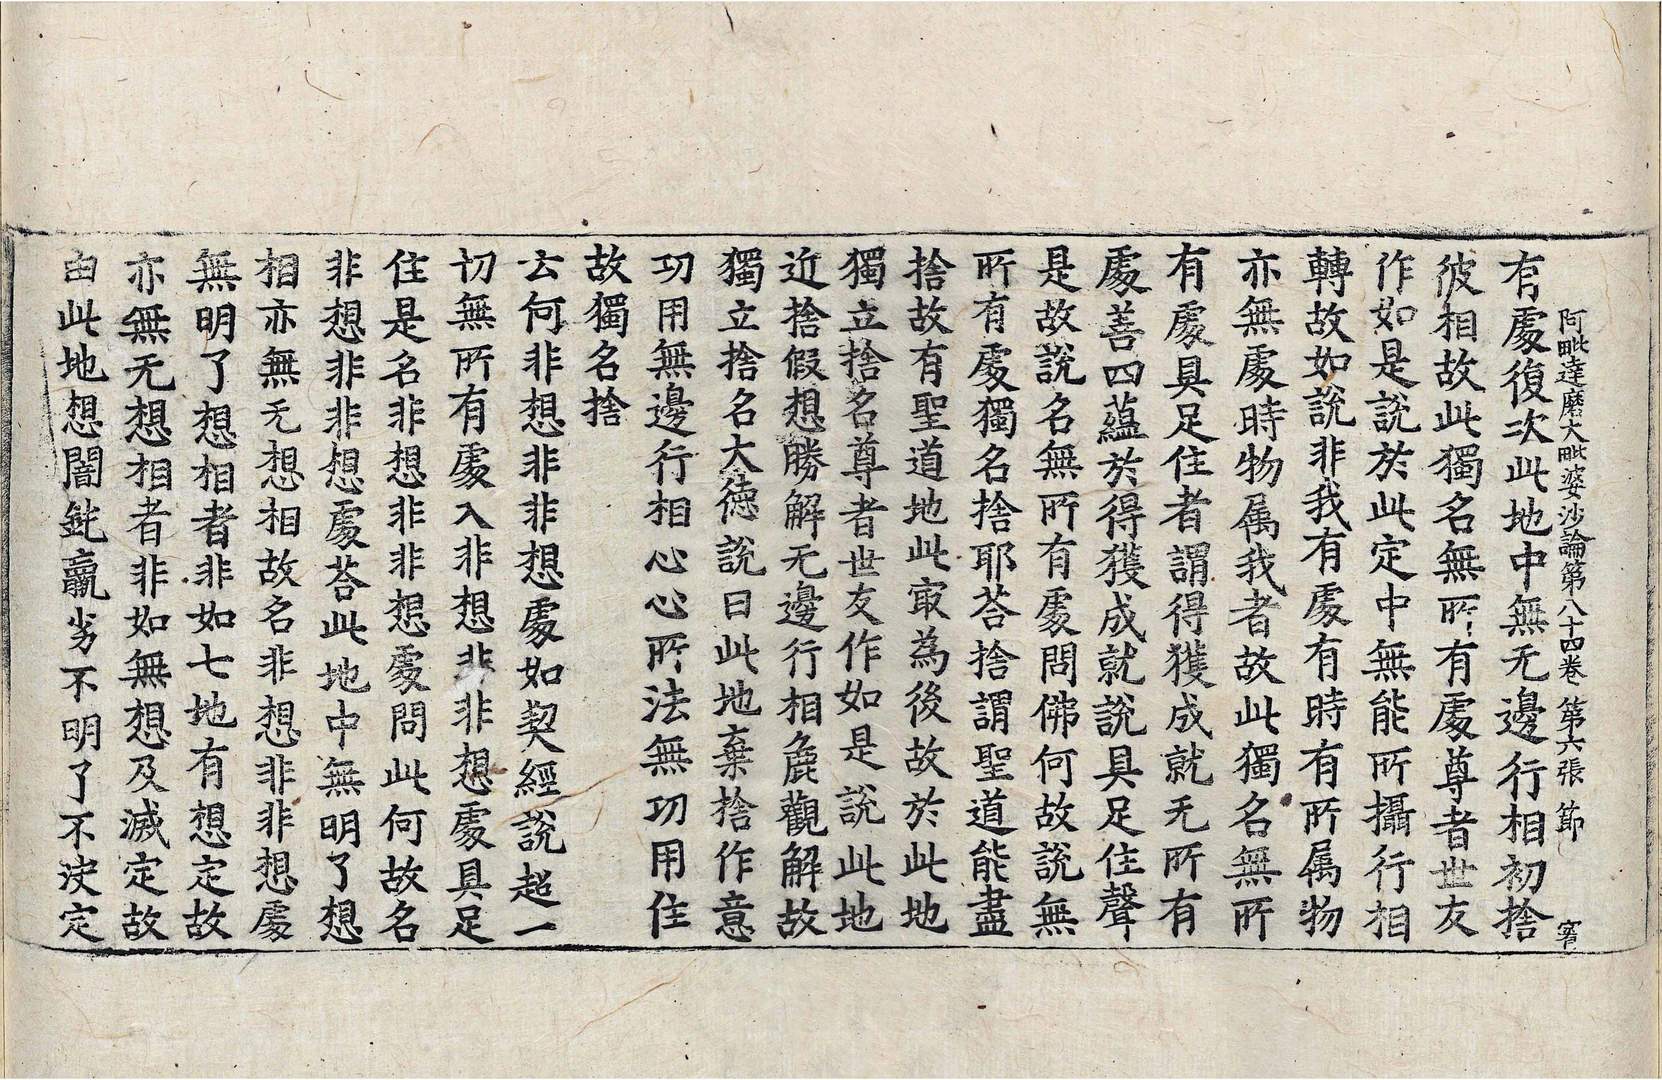 阿毗達磨大毗婆沙論第八十四卷 第六張 節
有處復次此地中無无邊行相初捨
彼相故此獨名無所有處尊者世友
作如是說於此定中無能所攝行相
轉故如說非我有處有時有所属物
亦無處時物属我者故此獨名無所
有處具足住者謂得獲成就无所有
處善四蘊於得獲成就說具足住聲
是故說名無所有處問佛何故說無
所有處獨名捨耶荅捨謂聖道能盡
捨故有聖道地此㝡為後故於此地
獨立捨名尊者世友作如是說此地
近捨假想勝解无邊行相麁觀解故
獨立捨名大德說曰此地棄捨作意
功用無邊行相心心所法無功用住
故獨名捨
云何非想非非想處如契經說超一
切無所有處入非想非非想處具足
住是名非想非非想處問此何故名
非想非非想處荅此地中無明了想
相亦無无想相故名非想非非想處
無明了想相者非如七地有想定故
亦無无想相者非如無想及滅定故
由此地想闇鈍羸劣不明了不決定